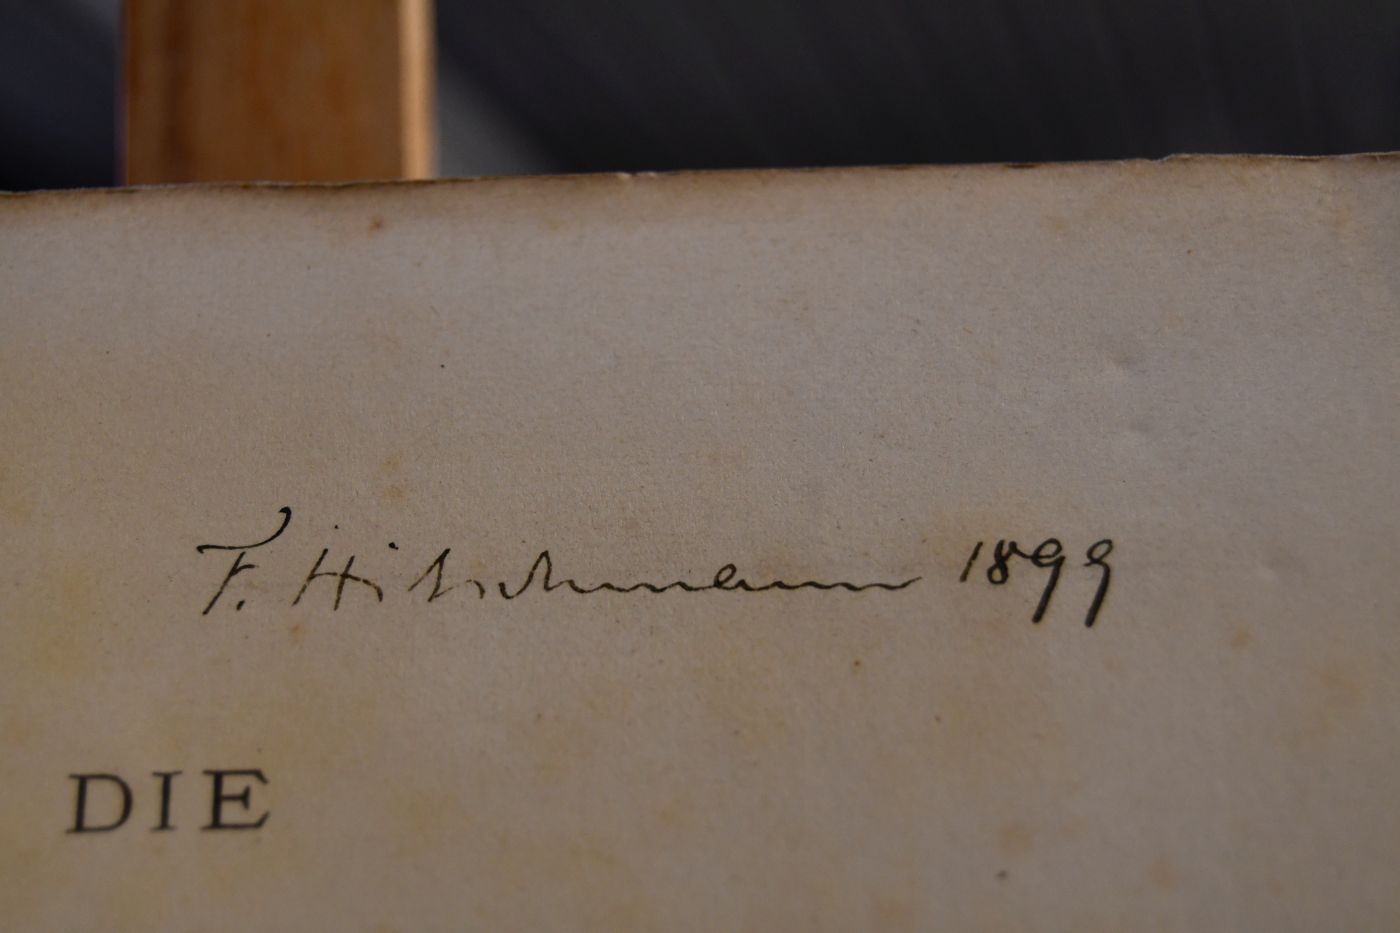 F. Hitschmann 1899
DIE